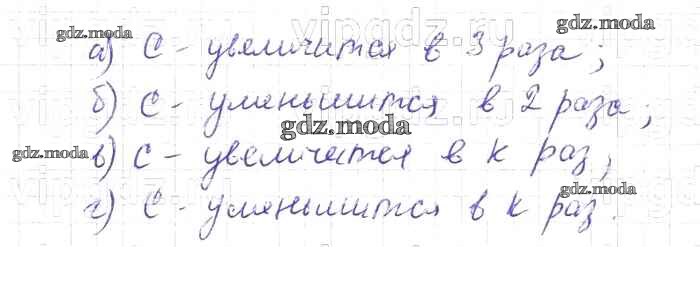 vipgdz.ru
gdz.moda gdz.moda
а) С - увеличится в 3 раза;
б) С - уменьшится в 2 раза;
gdz.moda
gdz.moda в) С - увеличится в к раз;
gdz.moda
г) С - уменьшится в к раз.